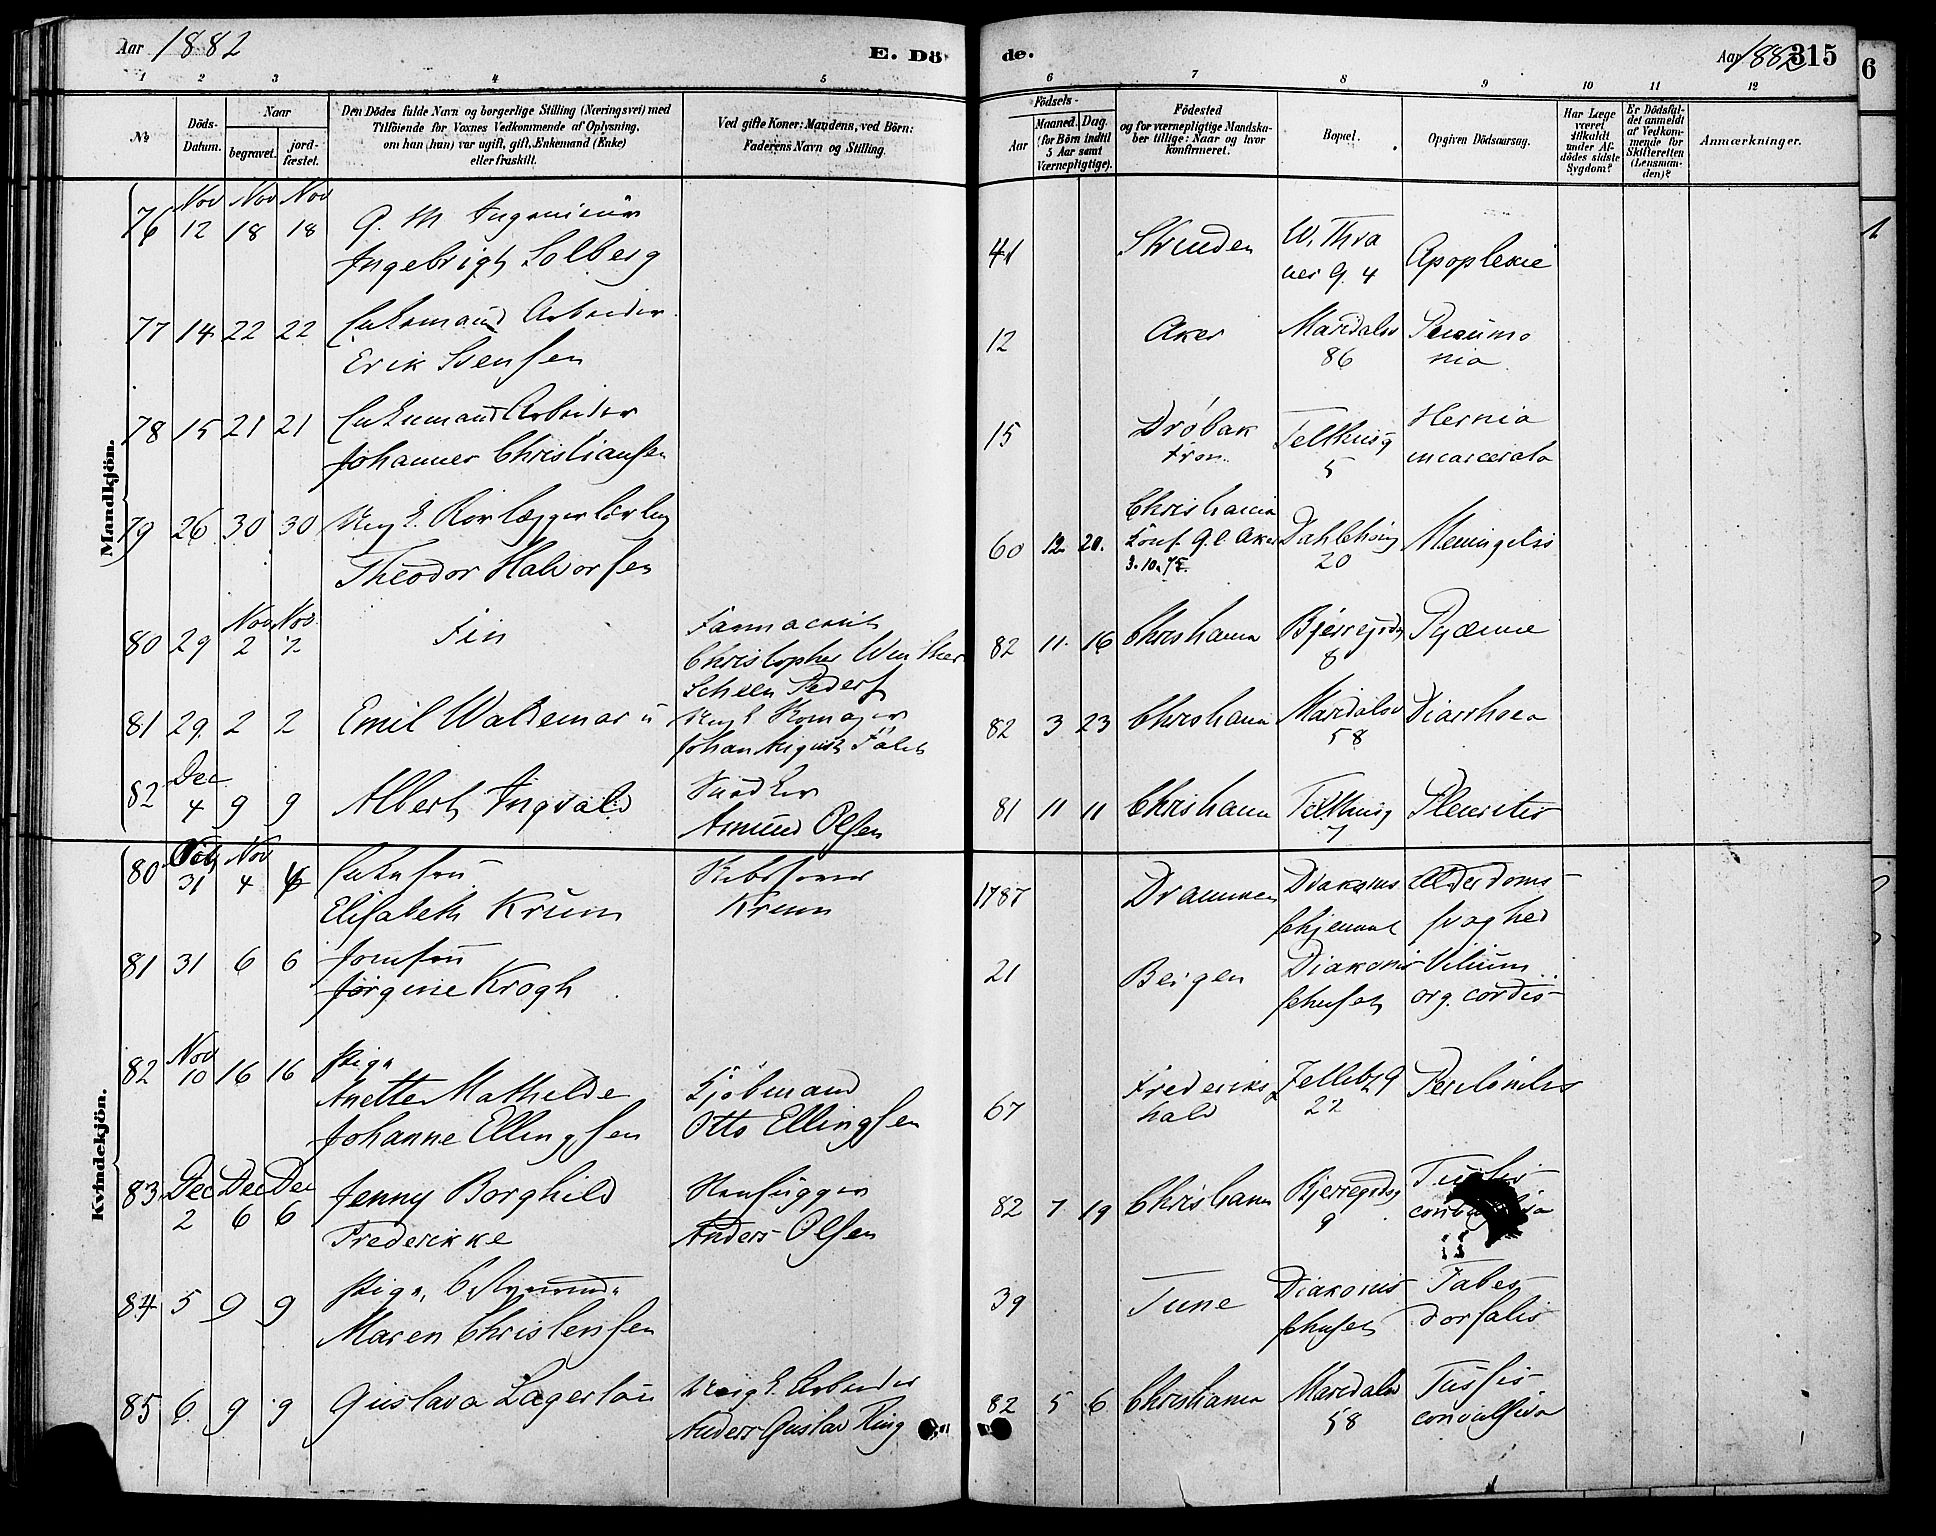 Aar 1882
E. Dö
de.
Aar 1882 315
6
1 2 3 4 5 6 7 8 9 10 11 12
No
Döds-
Datum.
Naar
begravet.
jord-
fæstet.
Den Dödes fulde Navn og borgerlige Stilling (Næringsvei) med
Tilföiende for Voxnes Vedkommende af Oplysning,
om han (hun) var ugift, gift, Enkemand (Enke)
eller fraskilt.
Ved gifte Koner: Mandens, ved Börn:
Faderens Navn og Stilling.
Födsels-
Aar
Maaned.
Dag.
(for Börn indtil
5 Aar samt
Værnepligtige).
Födested
og for værnepligtige Mandska-
ber tillige: Naar og hvor
konfirmeret.
Bopæl.
Opgiven Dödsaarsag.
Har Læge
været
tilkaldt
under Af-
dödes sidste
Sygdom?
Er Dödsfal-
det anmeldt
af Vedkom-
mende for
Skifteretten
(Lensman-
den)?
Anmærkninger.
Mandkjön.
76 Nov 12 Nov 18 Nov 18 G. M. Ingeniör
Ingebrigt Solberg
41 Strinden W. Thra
nes G. 4 Apoplexie
77 14 22 22 Enkemand Arbeider
Erik Svensen
12 Aker Maridalsv
86 Pneumo
nia
78 15 21 21 Enkemand Arbeider
Johannes Christiansen
15 Dröbak Telthusg
5 Hernia
incarcerata
79 26 30 30 Ung K. Rörlægger
Theodor Halvorsen
60 12. 20. Christiania
Konf. G. A. Aker
3. 10. 75. 20 Meningitis
80 29 Nov 2 Nov. 2 Fin
Farmaceut
Christopher Winther
Scheen Peders
82 11. 16 Christiania Bjerregdsg
8 Pyæmie
81 29. 2 2 Emil Waldemar u
Johan August
82 3 23 Christiania Maridalsv
58 Diarrhoea
82 Dec 4 9 9 Albert Ingvald
Snedker
Asmund Olsen
81 11 11 Christiania Telthusg
7 Pleuritis
Kvindekjön.
80 Oct 31 Nov 4 4 Enkefru
Elisabeth Krum
Skibsförer
Krum
1787 Drammen Diakonis
sehjemmet Alderdoms-
svaghed
81 31 6 6 Jomfru
Jörgine Krogh
21 Bergen Diakonis
sehuset Vitium
org. cordis
82 Nov 10 16 16 Pige
Anette Mathilde
Johanne Ellingsen
Kjöbmand
Otto Ellingsen
67 Frederiks
hald
22 Peritonitis
83 Dec 2 Dec 6 Dec 6 Jenny Borghild
Frederikke
Stenhugger
Anders Olsen
82 7 19 Christiania Bjerregdsg
9 Tussis
convulsiva
84 5 9 9 Pige
Maren Christensen
39 Tune Diakonis
sehuset Tabes
dorsalis
85 6. 9 9 Gustava
Ung K. Arbeider
Anders Gustav Ring
82 5 6 Christiania Maridalsv
58 Tussis
convulsiva